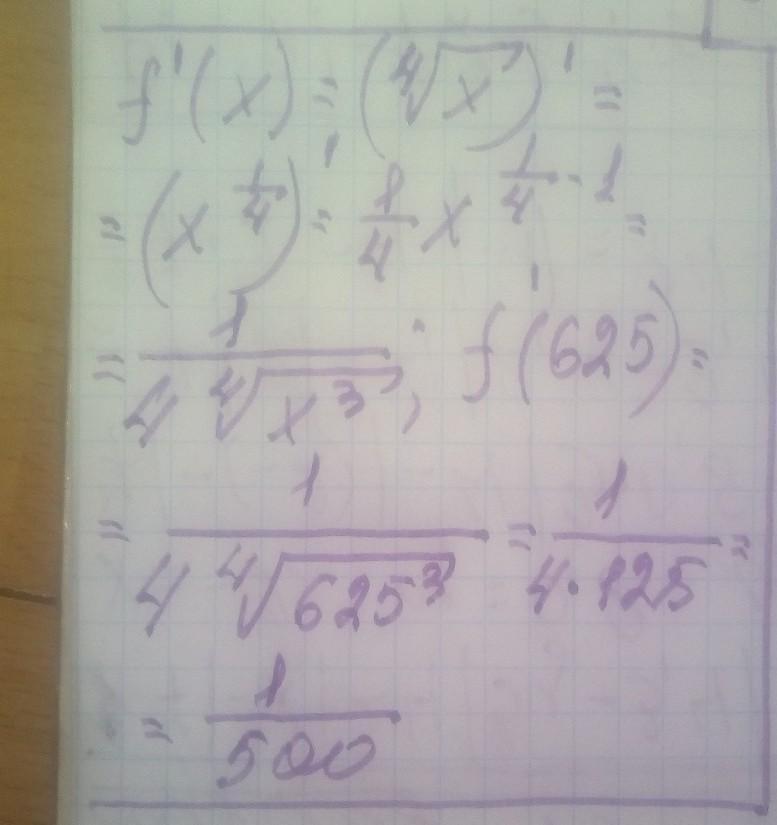 f'(x) = (∜x)' =
= (x^(1/4))' = 1/4 x^(1/4 - 1) =
= 1/(4 ∜(x³)); f'(625) =
= 1/(4 ∜(625³)) = 1/(4·125) =
= 1/500